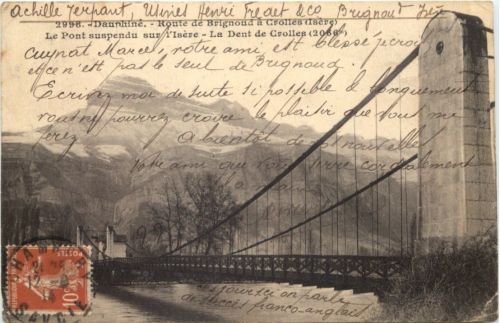 achille ferrant, Usines Henri Fredet &Co Brignoud Isère
2998. - Dauphiné. - Route de Brignoud à Crolles (Isère)
Le Pont suspendu sur l'Isère - La Dent de Crolles (2066m)
cuynat Marcel, votre ami, est blessé
et ce n'est pas le seul de Brignoud.
Ecrivez moi de suite si possible & longuement
vous ne pourrez croire le plaisir que vous me
ferez.
A bientôt de nouvelles
votre ami qui vous serre cordialement
la main
ces jours ci on parle
de succès franco-anglais
10